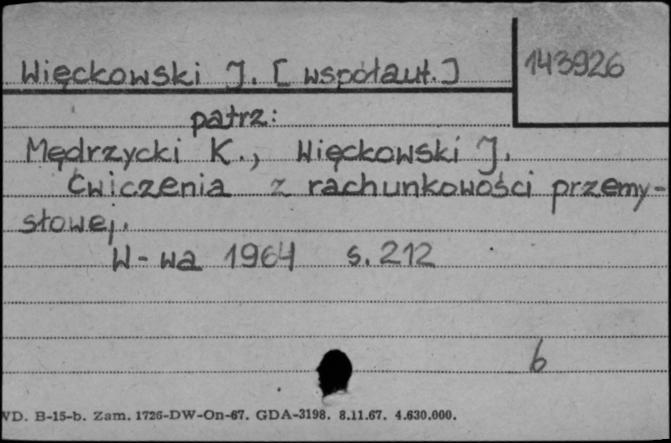 Więckowski J. [współaut.] 143926
patrz:
Mędrzycki K., Więckowski J.
Ćwiczenia z rachunkowości przemy-
słowej.
W-wa 1964 s. 212
6
WD. B-15-b. Zam. 1726-DW-On-67. GDA-3198. 8.11.67. 4.630.000.